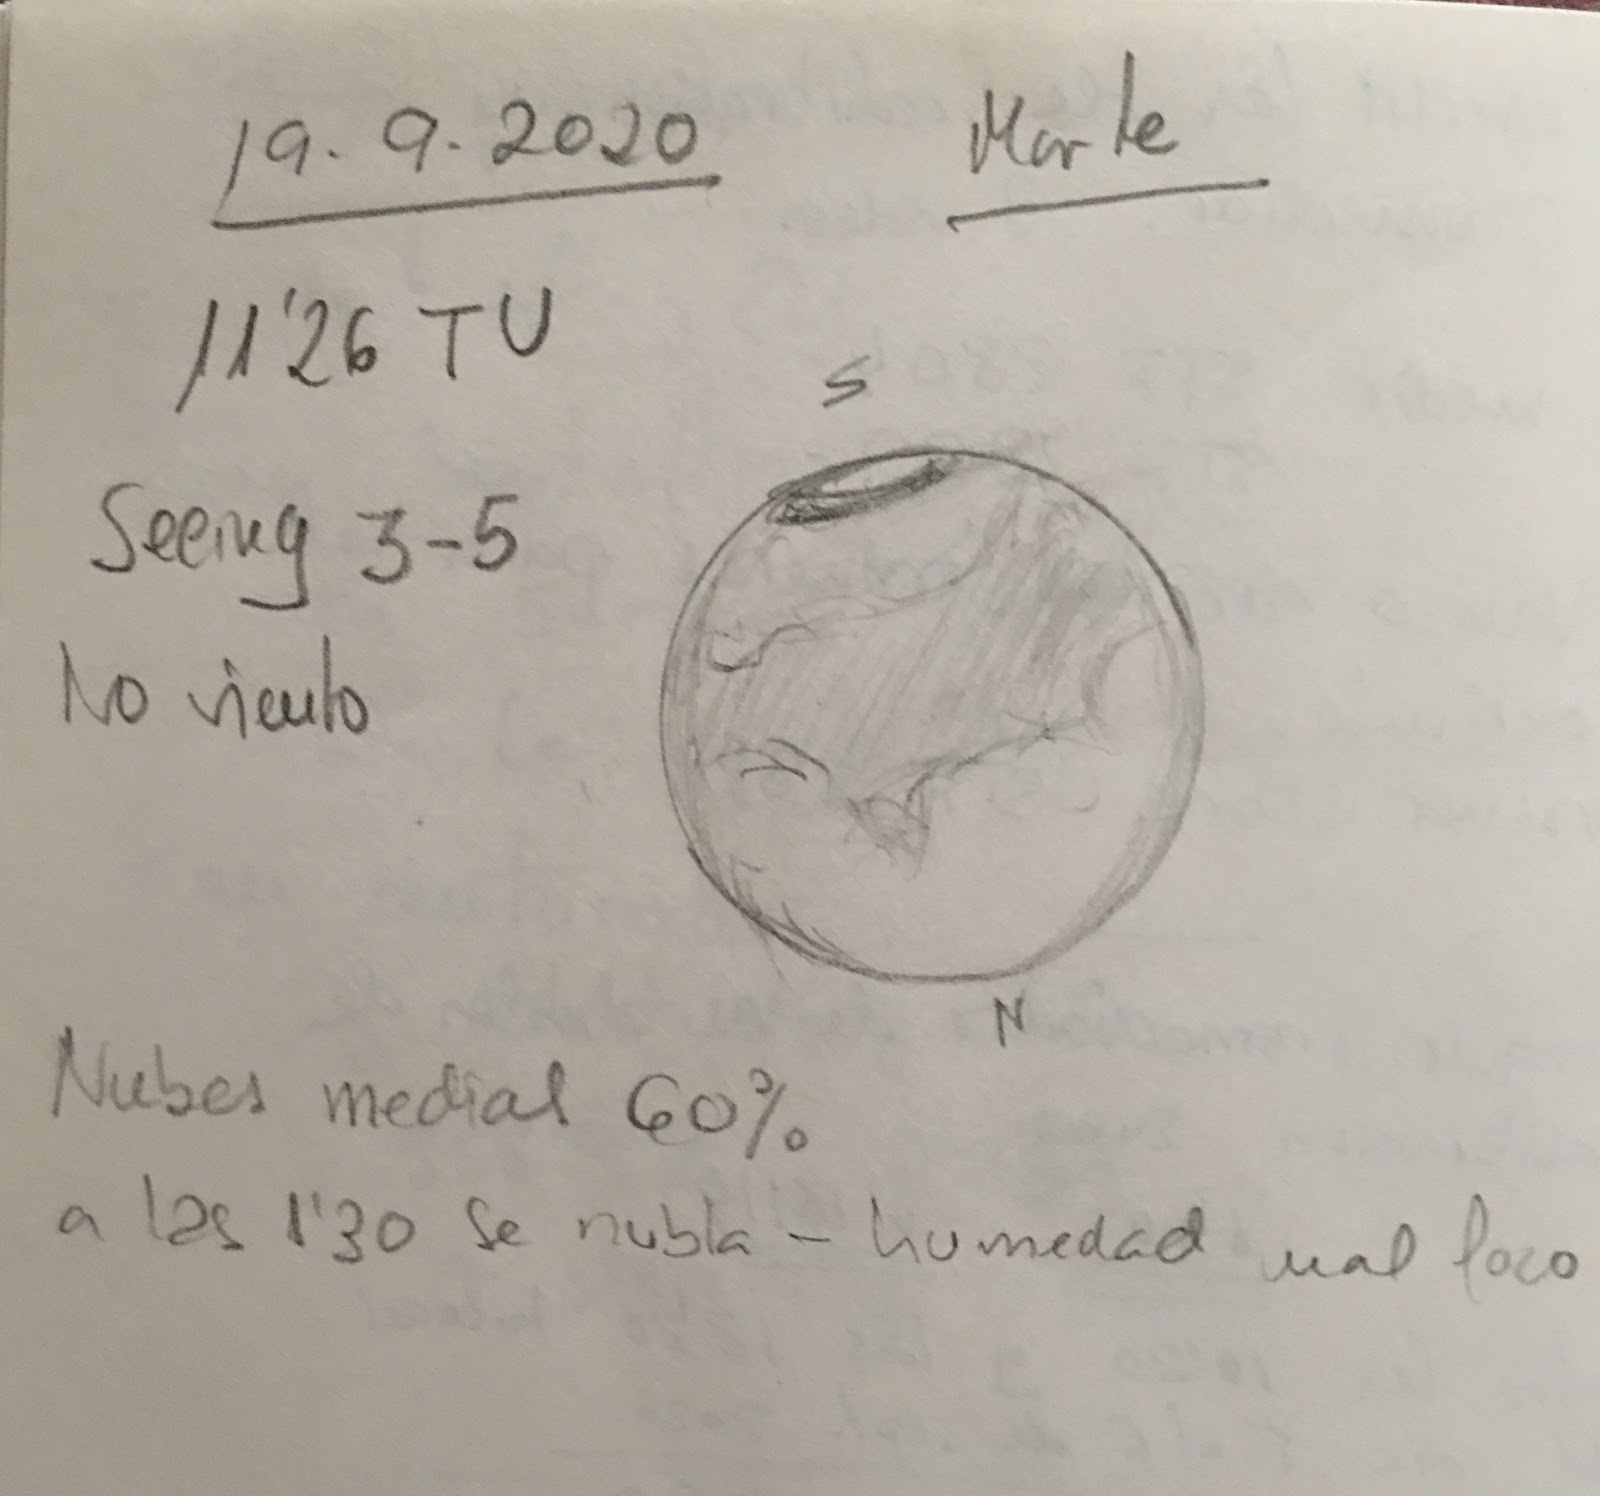 19. 9. 2020 Marte
11'26 TU
S
Seeing 3-5
No viento
N
Nubes medial 60%
a las 1'30 se nubla - humedad mal foco